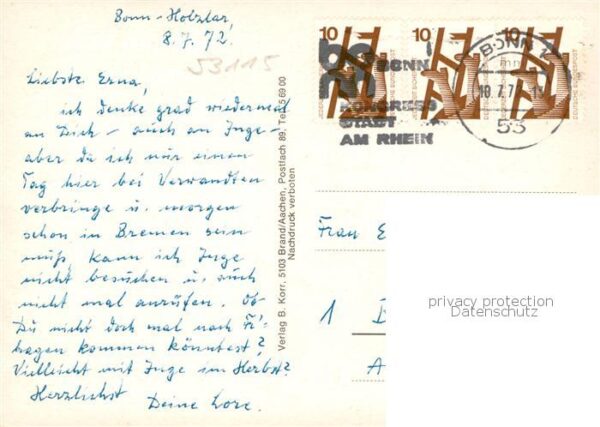 Bonn-Holzlar,
8.7.72.
53115
Liebste Erna,
ich denke grad wiedermal
an Dich - auch an Inge -
aber da ich nur einen
Tag hier bei Verwandten
verbringe u. morgen
schon in Bremen sein
muß kann ich Inge
nicht besuchen u. auch
nicht mal anrufen. Ob
Du nicht doch mal nach
hagen kommen könntest?
Vielleicht mit Inge im Herbst?
Herzlichst Deine Lore.
Verlag B. Korr, 5103 Brand/Aachen, Postfach 89, Tel. 5 69 00
Nachdruck verboten
10 10 10
DEUTSCHE BUNDESPOST
BONN
KONGRESS
STADT
AM RHEIN
BONN 1
mn
10.7.7
53
Frau E
1
privacy protection
Datenschutz